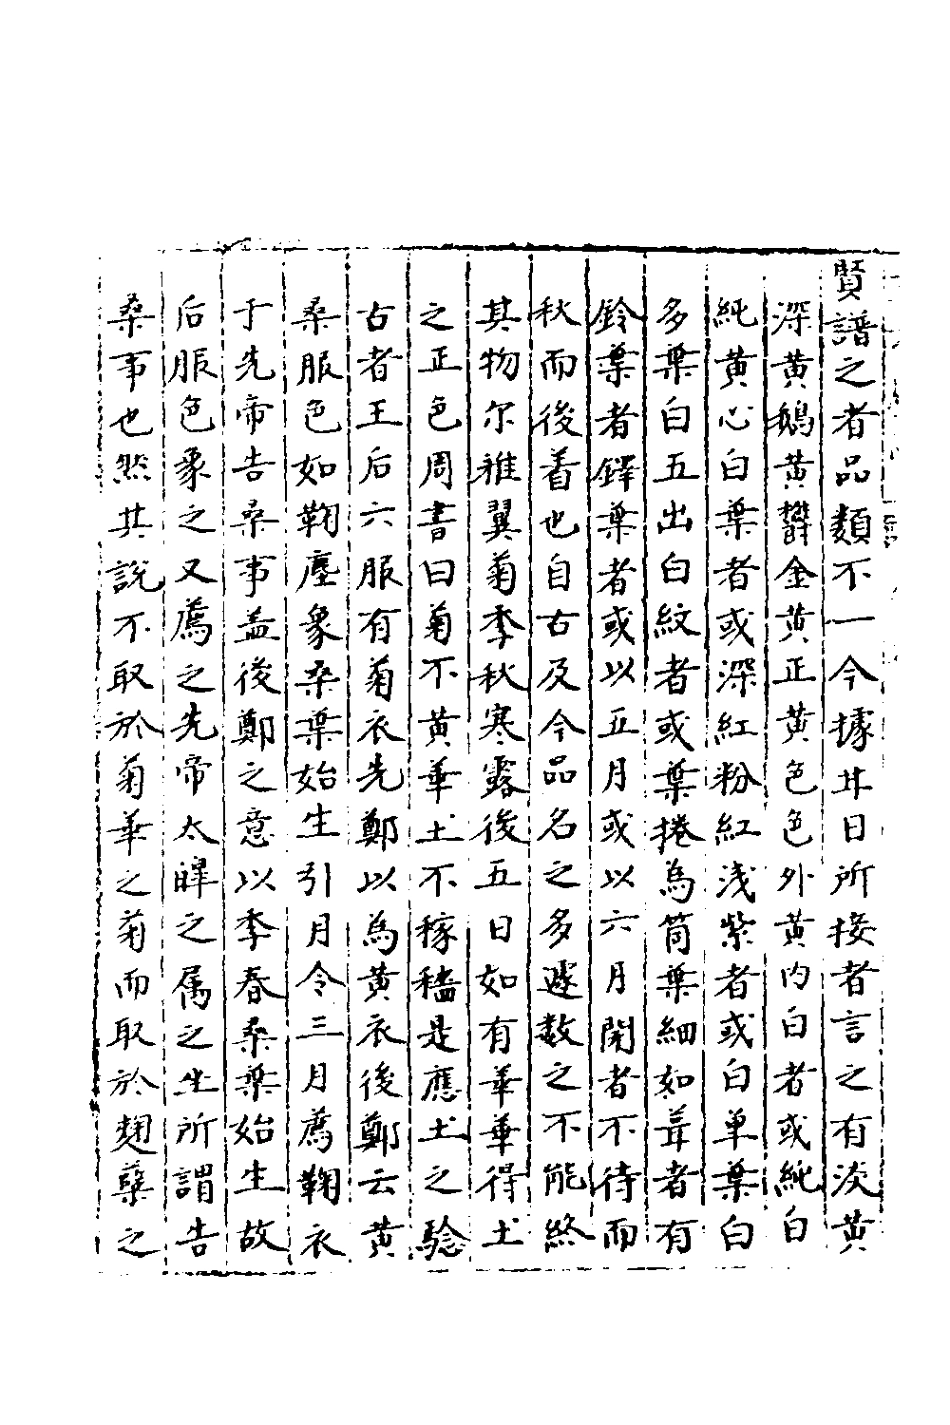 賢譜之者品類不一今據廿日所接者言之有淡黃
深黃鵝黃欝金黃正黃色色外黃内白者或純白
純黃心白葉者或深紅粉紅浅紫者或白单葉白
多葉白五出白紋者或葉捲為筒葉細如茸者有
鈴葉者鐸葉者或以五月或以六月開者不待而
秋而後着也自古及今品名之多遽数之不能終
其物尔雅翼菊季秋寒露後五日如有華華得土
之正色周書曰菊不黃華土不稼穡是應土之騐
古者王后六服有菊衣先鄭以為黃衣後鄭云黃
桑服色如鞠塵象桑葉始生引月令三月薦鞠衣
于先帝告桑事盖後鄭之意以季春桑葉始生故
后服色象之又薦之先帝太皥之属之坐所謂告
桑事也然其說不取於菊華之菊而取於麹蘖之